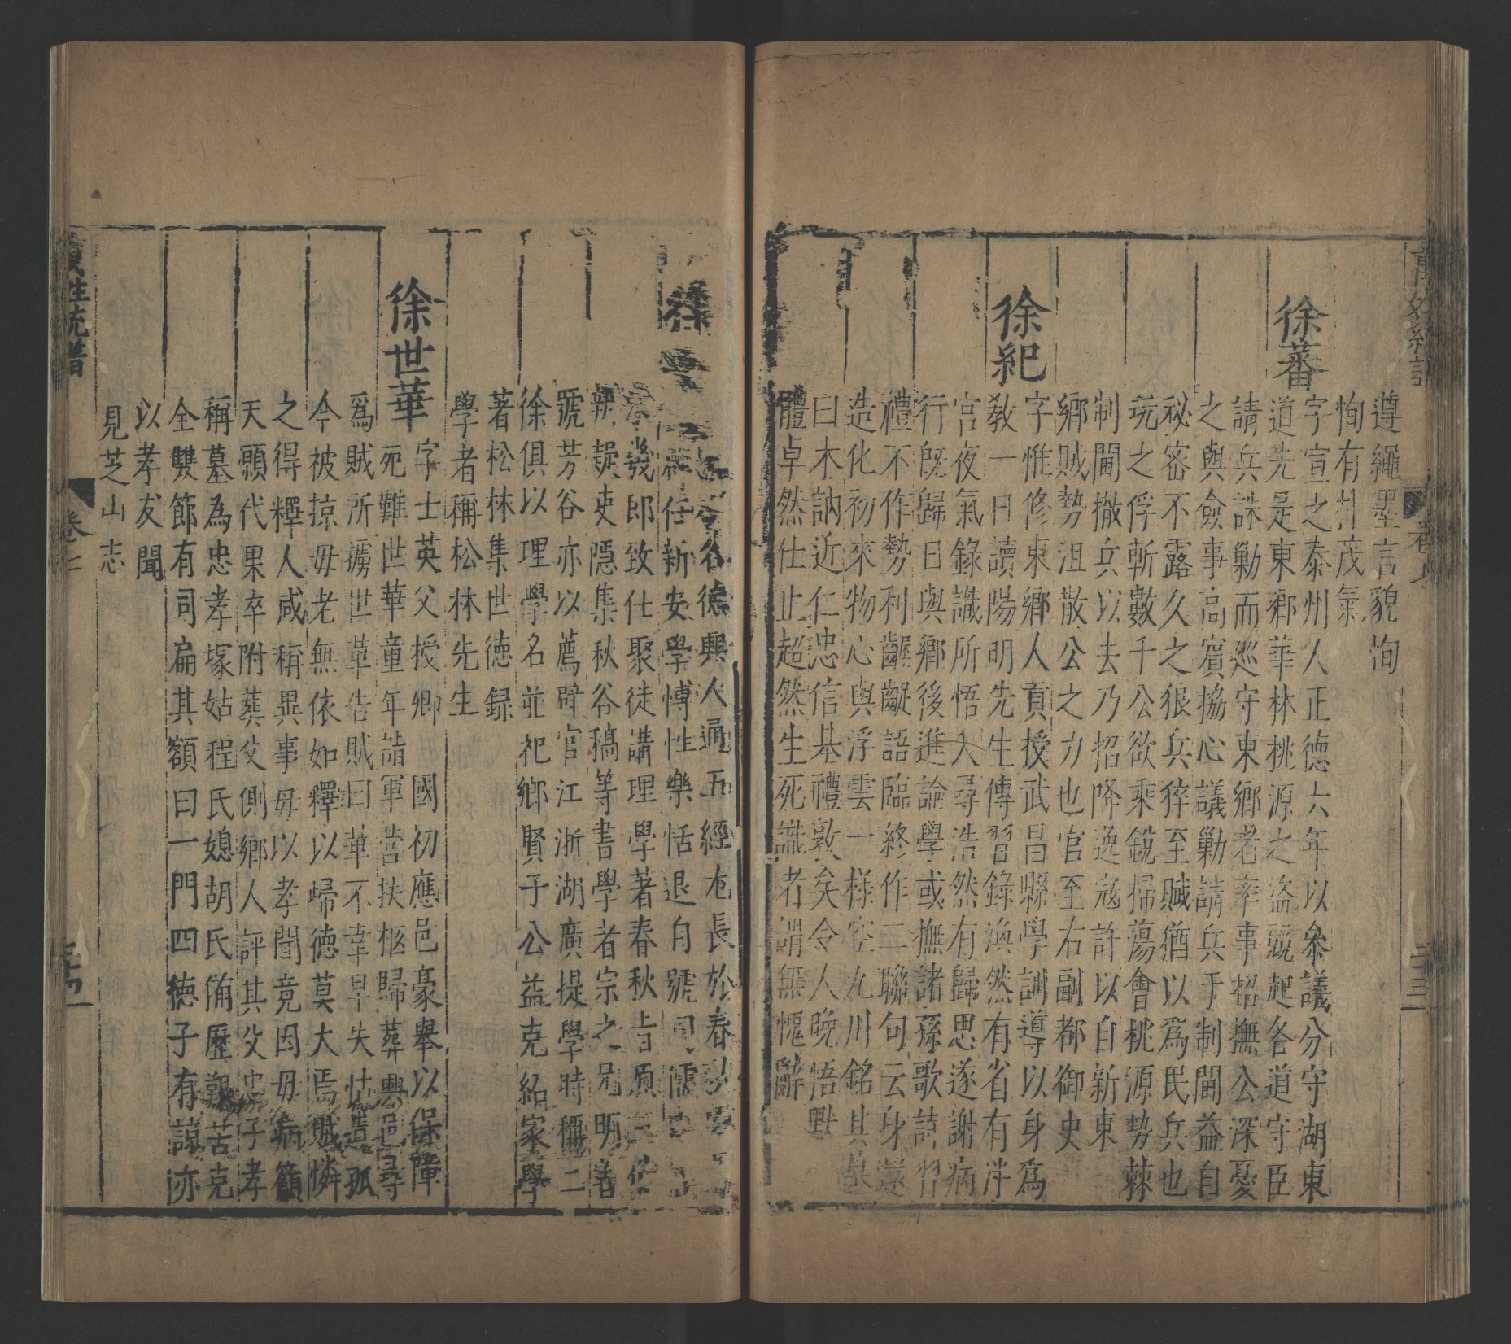 遵繩墨言貌恂
恂有卅茂氣
徐蕃
字宣之泰州人正德六年以參議分守湖東
道先是東鄉華林桃源之盜競起各道守臣
請兵誅勦而巡守東鄉者率事招撫公深憂
之與僉事高賓協心議勦請兵于制閫益自
祕密不露久之狼兵猝至賊猶以爲民兵也
玩之俘斬數千公欲乘銳掃蕩會桃源勢棘
制閫撤兵以去乃招降逸寇許以自新東
鄉賊勢沮散公之力也官至右副都御史
徐紀
字惟修東鄉人貢授武昌縣學訓導以身爲
教一日讀陽明先生傳習錄渙然有省有泮
官夜氣錄識所悟入尋浩然有歸思遂謝病
行旣歸日與鄉後進論學或撫諸孫歌詩習
禮不作勢利齷齪語臨終作二聯句云身還
造化初來物心與浮雲一樣空九川銘其墓
曰木訥近仁忠信基禮敦矣令人晚悟默
體卓然仕止超然生死識者謂無愧辭
谷德興人通五經尤長於春秋
任新安學博性樂恬退自號
幾郎致仕聚徒講理學著春秋
疑吏隱集秋谷稿等書學者宗之兄明善
號芳谷亦以薦辟官江浙湖廣提學時稱二
徐俱以理學名並祀鄉賢子公益克紹家學
著松林集世德録
學者稱松林先生
徐世華
字士英父授卿 國初應邑豪舉以保障
死難世華童年詣軍營扶柩歸葬興邑尋
爲賊所擄世華告賊曰華不幸早失怙遺孤
今被掠毋老無依如釋以歸德莫大焉賊憐
之得釋人咸稱異事毋以孝聞竟因毋病籲
天願代果卒附葬父側鄉人評其父忠子孝
稱墓為忠孝塚姑程氏媳胡氏俻歷艱苦克
全雙節有司扁其額曰一門四德子有諒亦
以孝友聞
見芝山志
萬姓統譜
卷七